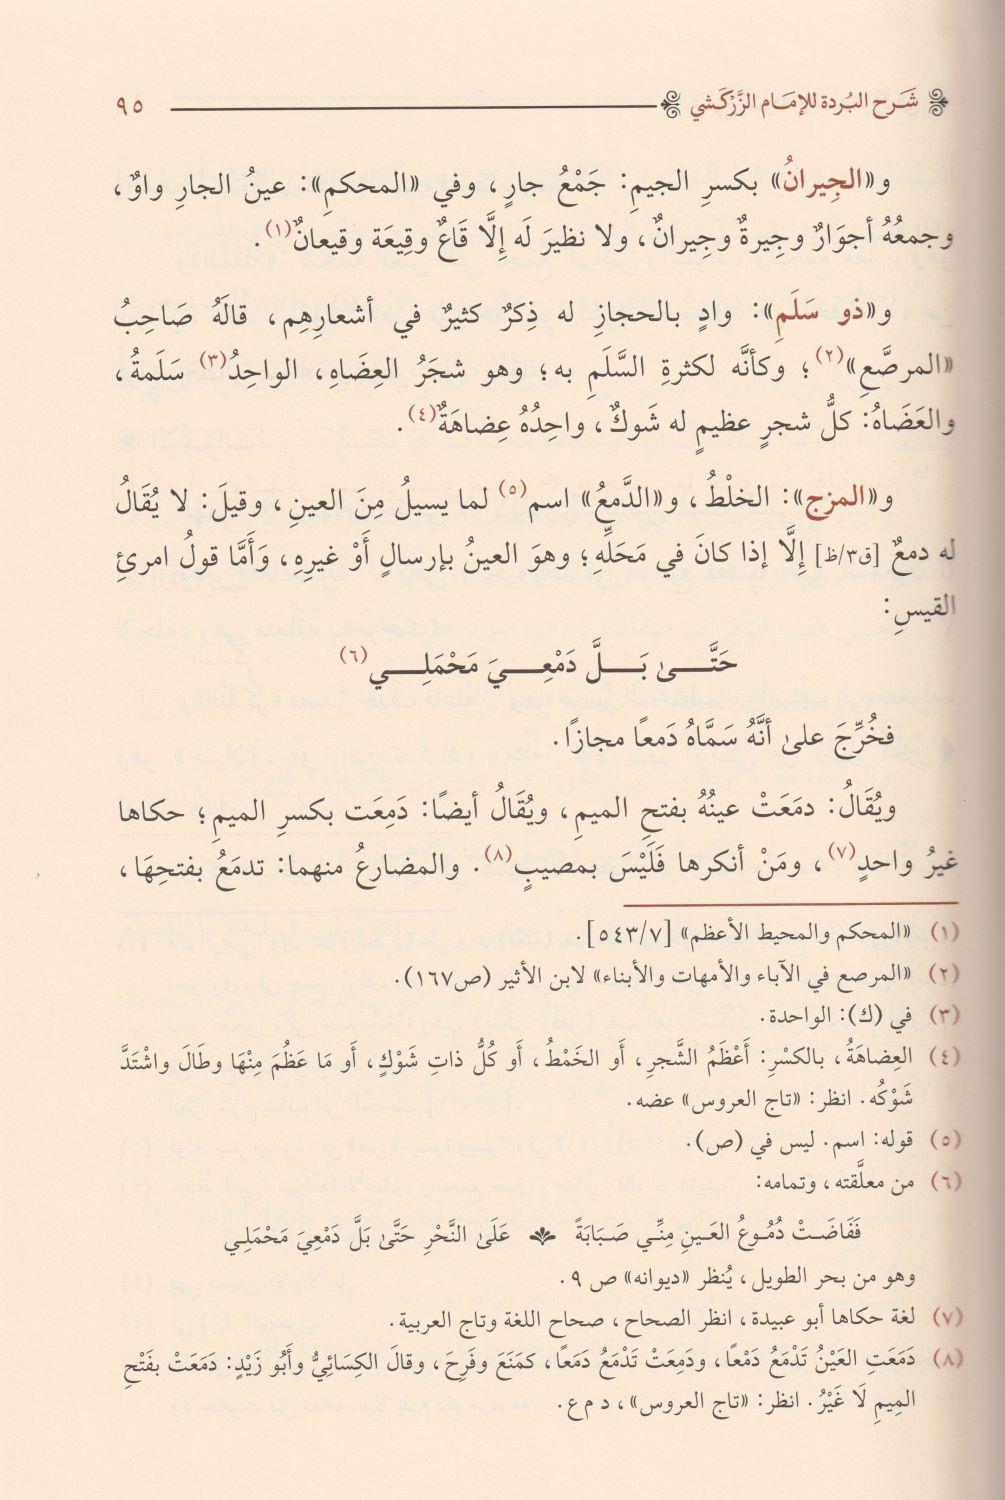 شَرح البُردة للإمَام الزَّرْكَشي ٩٥
و«الجِيرانُ» بكسرِ الجيمِ: جَمْعُ جارٍ، وفي «المحكمِ»: عينُ الجارِ واوٌ،
وجمعُهُ أجوَارٌ وجِيرةٌ وجِيرانٌ، ولا نظيرَ لَه إِلَّا قَاعٌ وقِيعَة وقيعانٌ(١).
و«ذو سَلَمِ»: وادٍ بالحجازِ له ذِكرٌ كثيرٌ في أشعارِهِم، قالَهُ صَاحِبُ
«المرصَّعِ»(٢)؛ وكأنَّه لكثرةِ السَّلَمِ به؛ وهو شجَرُ العِضَاهِ، الواحِدُ(٣) سَلَمةُ،
والعَضَاهُ: كلُّ شجرٍ عظيمٍ له شَوكٌ، واحِدُهُ عِضاهَةٌ(٤).
و«المزج»: الخلْطُ، و«الدَّمعُ» اسم(٥) لما يسيلُ مِنَ العينِ، وقيلَ: لا يُقَالُ
له دمعٌ [ق٣/ظ] إِلَّا إذا كانَ في مَحَلِّهِ؛ وهوَ العينُ بإرسالٍ أَوْ غيرِهِ، وَأَمَّا قولُ امرئِ
القيسِ:
حَتَّـى بَـلَّ دَمْعِـيَ مَحْمَلِـي(٦)
فخُرِّجَ على أنَّهُ سَمَّاهُ دَمعًا مجازًا.
ويُقَالُ: دمَعَتْ عينُهُ بفتحِ الميمِ، ويُقَالُ أيضًا: دَمِعَت بكسرِ الميمِ؛ حكاها
غيرُ واحدٍ(٧)، ومَنْ أنكرها فَلَيْسَ بمصيبٍ(٨). والمضارعُ منهما: تدمَعُ بفتحِهَا،
(١) «المحكم والمحيط الأعظم» [٥٤٣/٧].
(٢) «المرصع في الآباء والأمهات والأبناء» لابن الأثير (ص١٦٧).
(٣) في (ك): الواحدة.
(٤) العِضاهَةُ، بالكسْرِ: أَعْظَمُ الشَّجرِ، أَو الخَمْطُ، أَو كُلُّ ذاتِ شَوْكٍ، أَو مَا عَظُمَ مِنْهَا وطَالَ واشْتَدَّ
شَوْكُه. انظر: «تاج العروس» عضه.
(٥) قوله: اسم. ليس في (ص).
(٦) من معلَّقته، وتمامه:
فَفَاضَتْ دُمُوعُ العَينِ مِنِّي صَبَابَةً عَلَى النَّحْرِ حَتَّى بَلَّ دَمْعِيَ مَحْمَلِي
وهو من بحر الطويل، يُنظر «ديوانه» ص ٩.
(٧) لغة حكاها أبو عبيدة، انظر الصحاح، صحاح اللغة وتاج العربية.
(٨) دَمَعَتِ العَيْنُ تَدْمَعُ دَمْعًا، ودَمِعَتْ تَدْمَعُ دَمَعًا، كمَنَعَ وفَرِحَ، وقالَ الكِسَائِيُّ وأَبُو زَيْدٍ: دَمَعَتْ بفَتْحِ
المِيمِ لَا غَيْرُ. انظر: «تاج العروس»، د م ع.